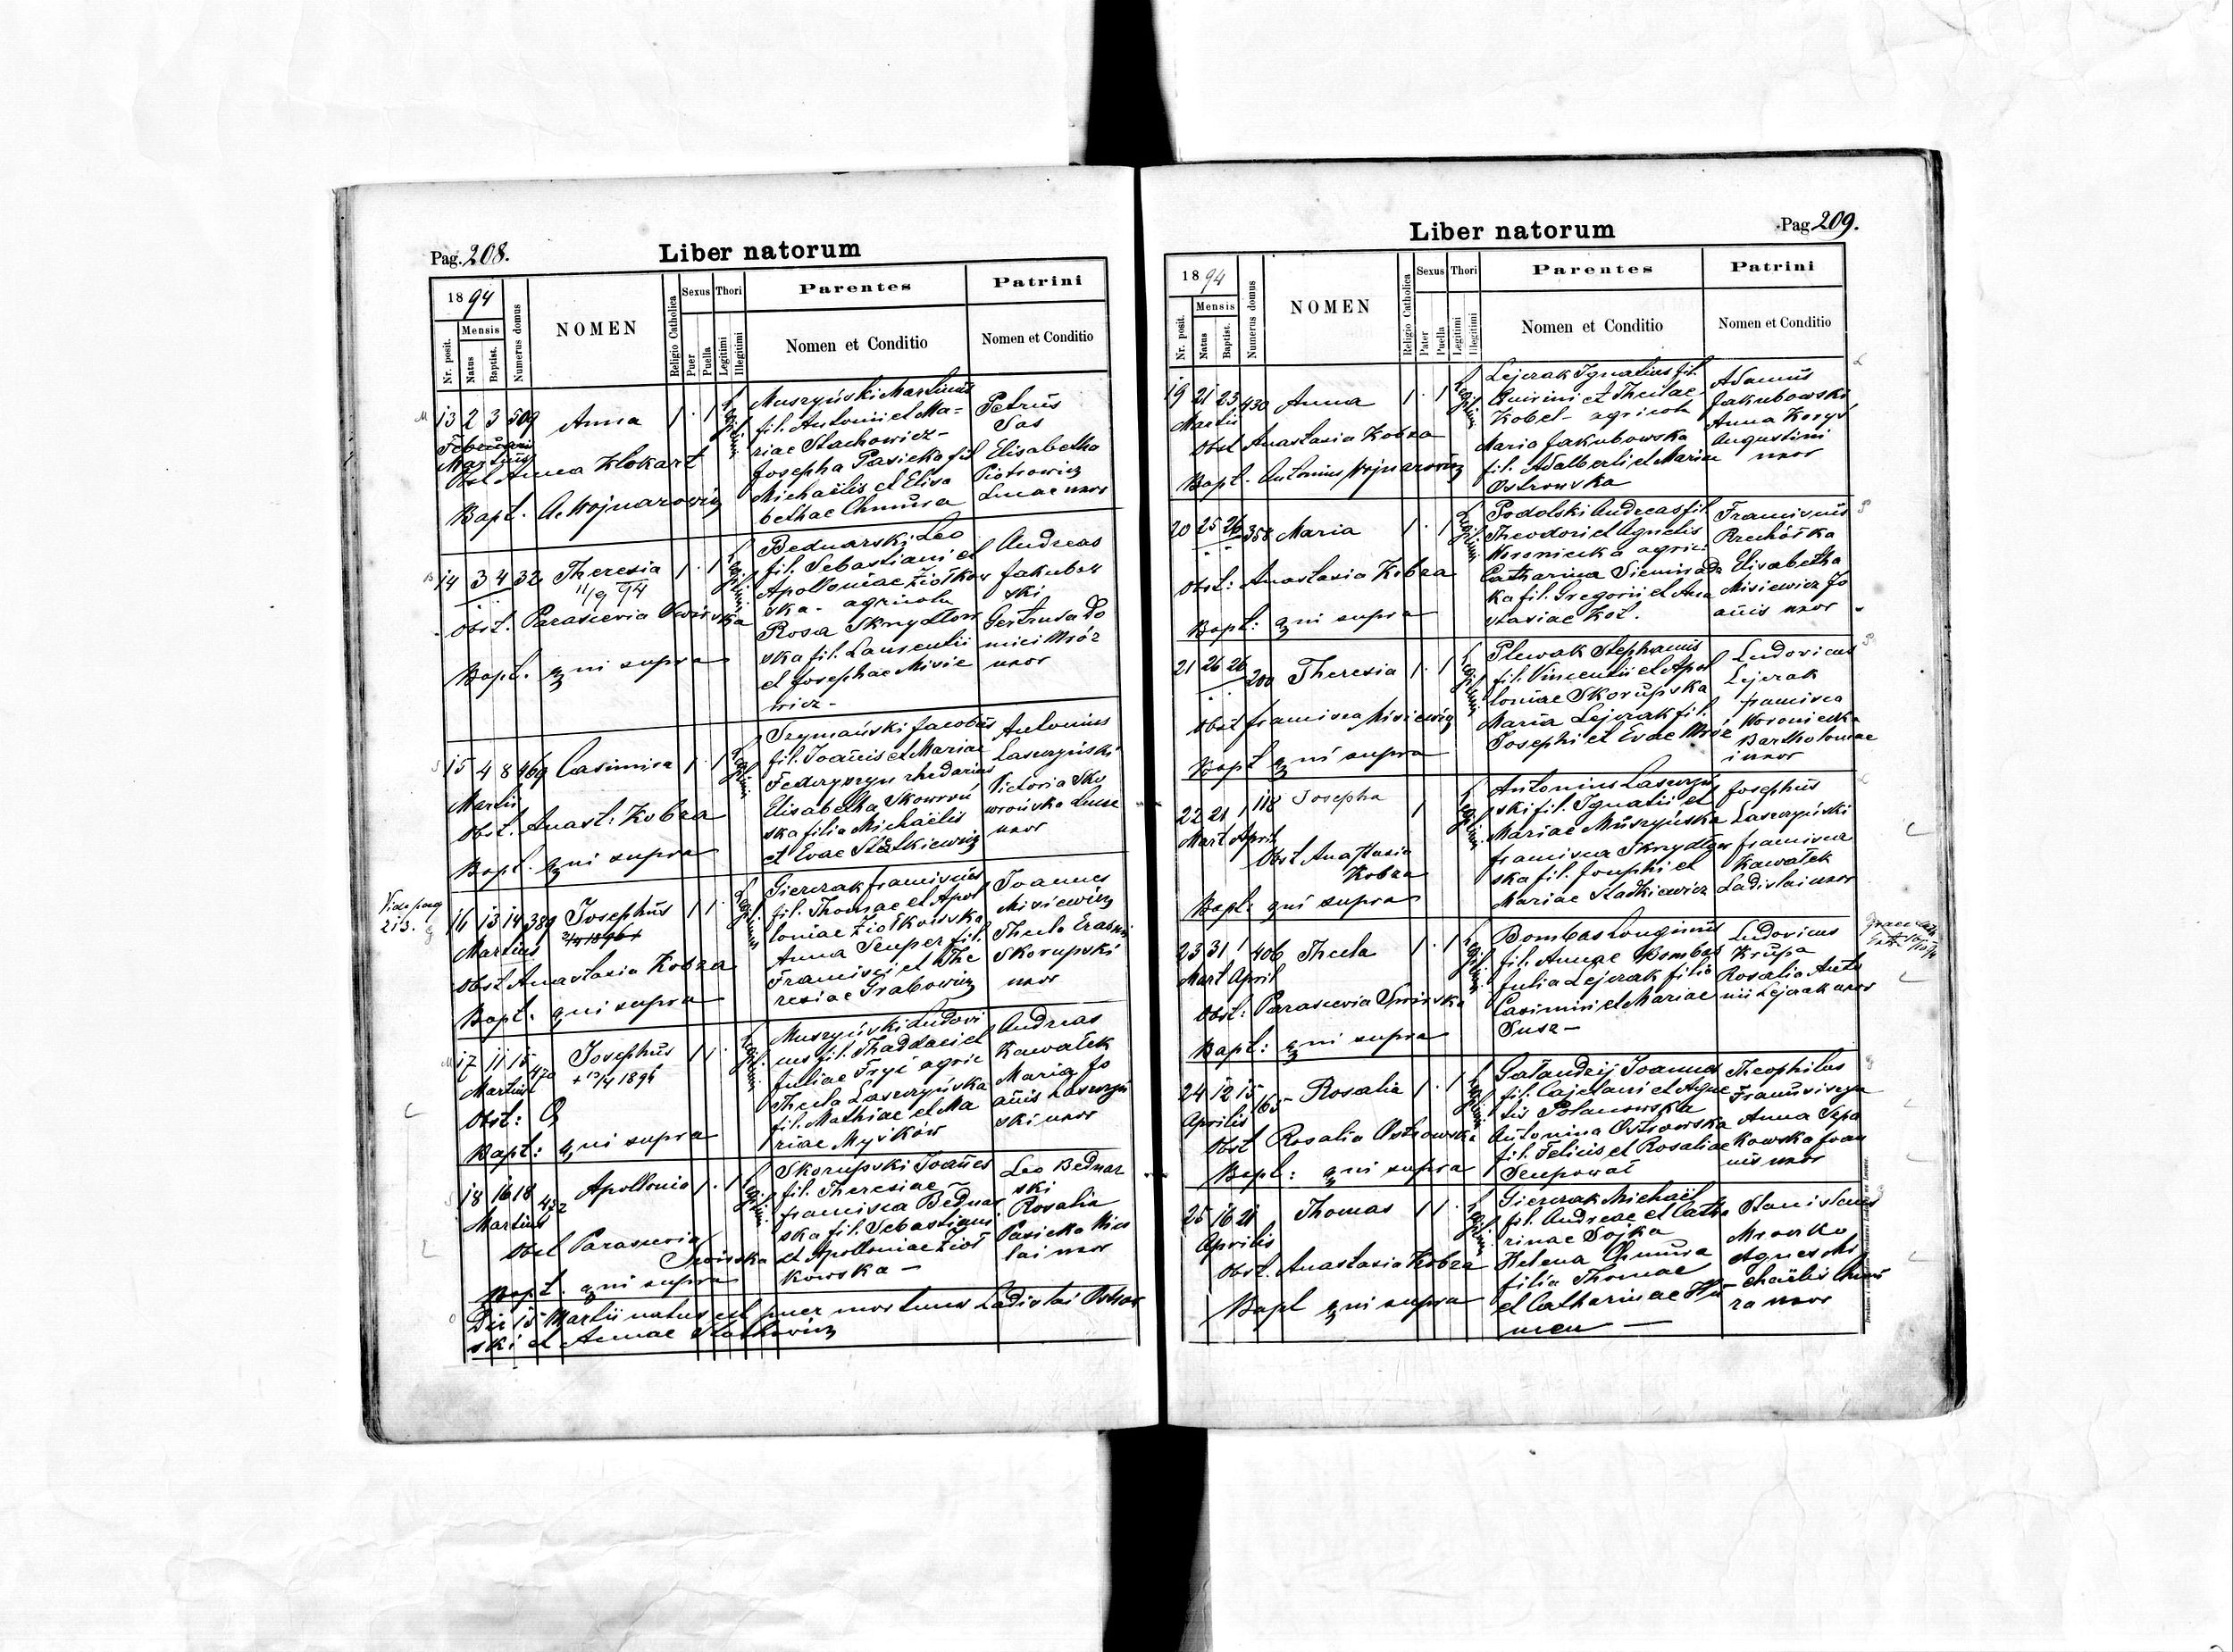 Pag. 208.
Liber natorum
1894
Nr. posit.
Mensis
Natus
Baptist.
Numerus domus
NOMEN
Religio Catholica
Sexus
Puer
Puella
Thori
Legitimi
Illegitimi
Parentes
Nomen et Conditio
Patrini
Nomen et Conditio
13 2 3 509 Anna 1 . 1
Februarii
Martius
Obst Anna Klokart
Bapt. A. Wojnarowicz
Muszyński Martinus
fil. Antonii et Ma=
riae Stachowicz -
Josepha Pasieka fil
Michaëlis et Elisa
bethae Chmura
Petrus
Sas
Elisabetha
Piotrowicz
Lucae uxor
14 3 4 32 Theresia 1 . 1
11/9 94
Obst. Parascevia
Bapt. qui supra
Bednarski Leo
fil. Sebastiani et
Apolloniae Ziółkow
ska - agricola
Rosa Skrzydłow
ska fil. Laurentii
et Josephae Misie
wicz -
Andreas
Jakubow
ski
Gertruda Do
minici Mróz
uxor
15 4 8 469 Casimira 1 . 1
Martii
Obst. Anast: Kobza
Bapt. qui supra
Szymański Jacobus
fil. Joañis et Mariae
Elisabetha Skowroń
ska filia Michaëlis
et Evae
Antonius
Laszczyński
Victoria Sko
wrońska Lucae
uxor
Vide pag
213.
16 13 14 389 Josephus 1 1 .
Martius
Obst Anastasia Kobza
Bapt: qui supra
Gierczak Franciscus
fil. Thomae et Apol
loniae Ziółkowska
Anna Szuper fil.
Francisci et The
resiae Grabowicz
Joannes
Misiewicz
Thecla Erasmi
Skorupski
uxor
17 11 15 470 Josephus 1 1 .
+ 13/4 1894
Martius
Obst:
Bapt: qui supra
Muszyński Ludovi
cus fil. Thaddaei et
Juliae Fryc agric
Thecla Laszczyńska
fil. Mathiae et Ma
riae Myśków
Andreas
Kawałek
Maria Jo
añis Laszczyń
ski uxor
18 16 18 472 Apollonia 1 . 1
Martius
Obst Parascevia
Bapt. qui supra
Skorupski Joañes
fil. Theresiae -
Francisca Bednar
ska fil. Sebastiani
et Apolloniae Ziół
kowska -
Leo Bednar
ski
Rosalia
Pasieka Nico
lai uxor
Die 15 Martii natus est puer mortuus Ladislai Ostrow
ski et Annae
Liber natorum
Pag 209.
1894
Nr. posit.
Mensis
Natus
Baptist.
Numerus domus
NOMEN
Religio Catholica
Sexus
Puer
Puella
Thori
Legitimi
Illegitimi
Parentes
Nomen et Conditio
Patrini
Nomen et Conditio
19 21 23 430 Anna 1 . 1
Martii
Obst Anastasia Kobza
Bapt. Antonius Wojnarowicz
Lejczak Ignatius fil.
Quirini et Theclae
Kobel - agricola
Maria Jakubowska
fil. Adalberti et Mariae
Ostrowska
Adamus
Jakubowski
Anna Koryś
Augustini
uxor
20 25 26 358 Maria 1 . 1
Obst: Anastasia Kobza
Bapt: qui supra
Podolski Andreas fil
Theodori et Agnetis
Woroniecka agric:
Catharina Siemiradz
ka fil. Gregorii et Ana
stasiae Kot.
Franciscus
Elisabetha
Misiewicz Jo
añis uxor
21 26 26 200 Theresia 1 . 1
Obst Francisca Misiewicz
Bapt qui supra
Plewak Stephanus
fil. Vincentii et Apol
loniae Skorupska
Maria Lejczak fil.
Josephi et Evae Mróz
Ludovicus
Lejczak
Francisca
Woroniecka
Bartholomae
i uxor
22 21 1 118 Josepha 1
Mart April
Obst Anastasia
Kobza
Bapt: qui supra
Antonius Laszczyń
ski fil. Ignatii et
Mariae Muszyńska
Francisca Skrzydłow
ska fil. Josephi et
Mariae Sladkiewicz
Josephus
Laszczyński
Francisca
Kawałek
Ladislai uxor
23 31 1 406 Thecla 1 . 1
Mart April
Obst: Parascevia
Bapt: qui supra
Bombas Longinus
fil. Annae Bombas
Julia Lejczak filia
Casimiri et Mariae
Susz -
Ludovicus
Krupa
Rosalia Anto
nii Lejczak uxor
24 12 15 165 Rosalia 1 . 1
Aprilis
Obst Rosalia Ostrowska
Bapt: qui supra
Gałandzij Joannes
fil. Cajetani et Agne
tis Polanowska
Antonina Ostrowska
fil. Felicis et Rosaliae
Theophilus
Franciszyn
Anna Szpa
kowska Joan
nis uxor
25 16 21 Thomas 1 1 .
Aprilis
Obst. Anastasia Kobza
Bapt qui supra
Gierczak Michaël
fil. Andreae et Catha
rinae Sojka
Helena Chmura
filia Thomae
et Catharinae Hu
men -
Stanislaus
Agnes Mi
chaëlis Chmu
ra uxor